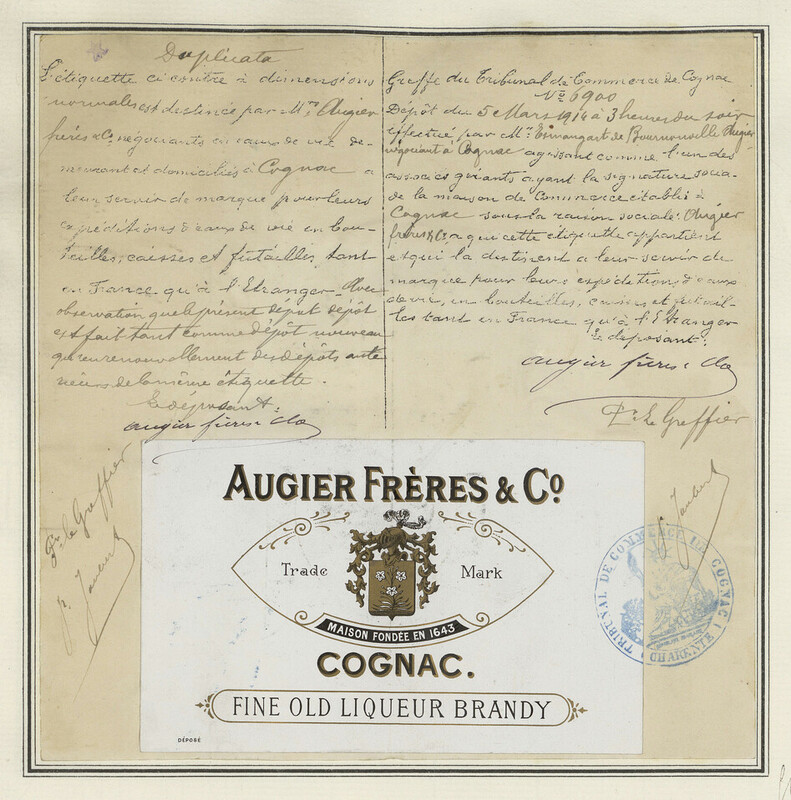 Duplicata
L'étiquette ci contre à dimensions
normales est destinée par Mrs Augier
frères & Co négociants en eaux de vie de-
meurant et domiciliés à Cognac a
leur servir de marque pour leurs
expéditions d'eaux de vie en bou-
teilles, caisses et futailles, tant
en France qu'à l'Etranger - Avec
observation que le présent dépot dépôt
est fait tant comme dépôt nouveau
qu'en renouvellement des dépôts anté
rieurs de la même étiquette.
Le déposant:
Augier frères & Co
Pr. le Greffier
P. Jaubert
Greffe du Tribunal de Commerce de Cognac
No 6900
Dépôt du 5 Mars 1914 à 3 heures du soir
effectué par Mr. de Bournonville Augier
négociant à Cognac agissant comme l'un des
associés gérants ayant la signature socia-
de la maison de Commerce établie à
Cognac sous la raison sociale: Augier
frères & Co, a qui cette étiquette appartient
et qui la destinent a leur servir de
marque pour leurs expédition, d'eaux
de vie, en bouteilles, caisses, et futail-
les tant en France qu'à l'Etranger
Le déposant:
Augier frères & Co
Pr. Le Greffier
P. Jaubert
AUGIER FRÈRES & Co
Trade Mark
MAISON FONDÉE EN 1643
COGNAC.
FINE OLD LIQUEUR BRANDY
DÉPOSÉ
TRIBUNAL DE COMMERCE DE COGNAC
CHARENTE